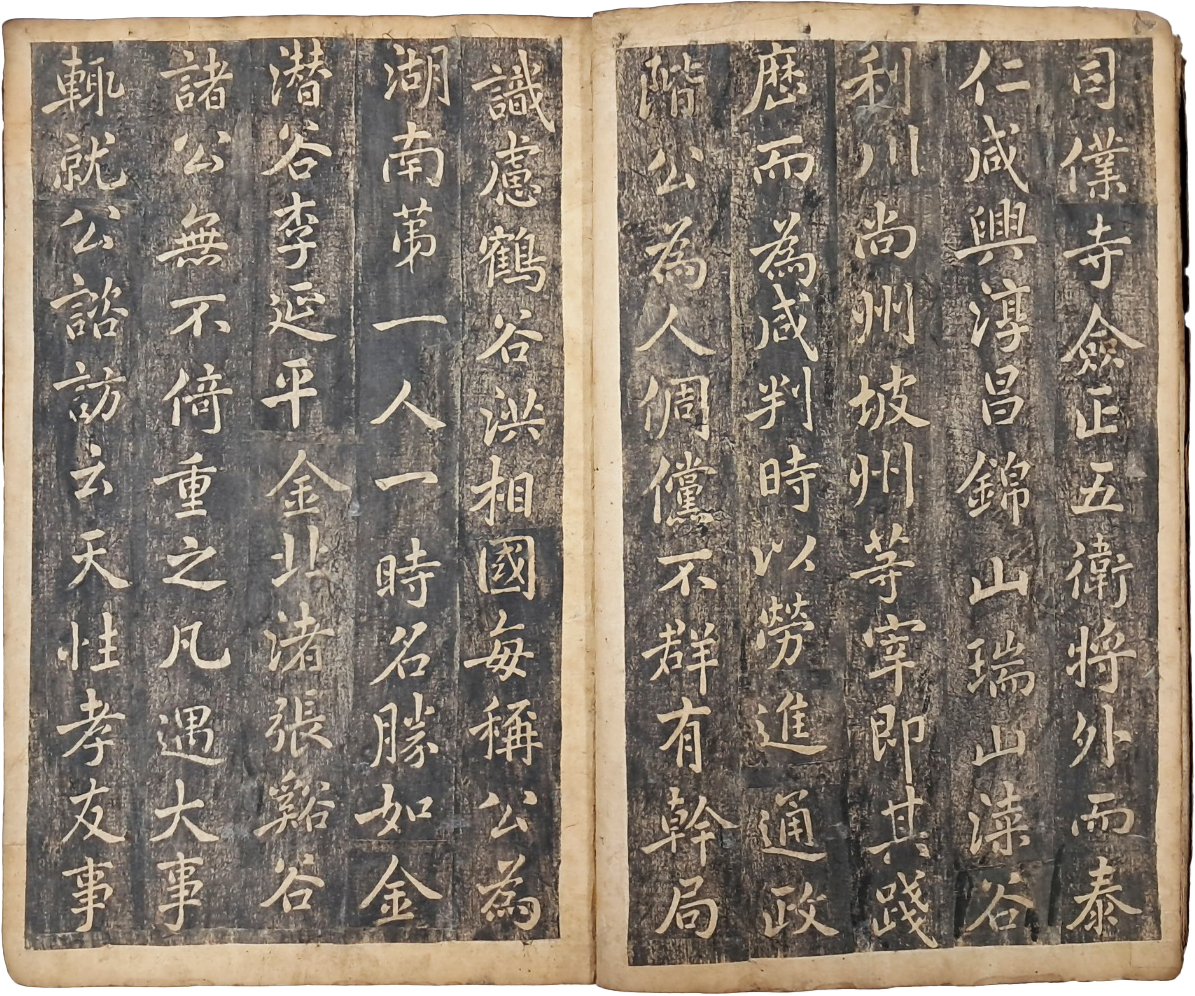 司僕寺僉正五衛將外而泰
仁咸興淳昌錦山瑞山漆谷
利川尚州坡州等宰即其踐
歷而為咸判時以勞進通政
階公為人倜儻不群有幹局
識慮鶴谷洪相國每稱公為
湖南第一人一時名勝如金
潛谷李延平金北渚張谿谷
諸公無不倚重之凡遇大事
輒就公諮訪云天性孝友事